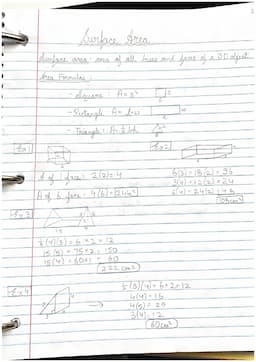 Surface Area
Surface area: area of all bases and faces of a 3D object
Area Formulas:
- Square: A = s²
- Rectangle: A = l·w
- Triangle: A = ½bh
Ex 1
Ex 2
A of 1 face: 2(2) = 4
A of 6 face: 4(6) = 24
6(3) = 18(2) = 36
3(4) = 12(2) = 24
6(4) = 24(2) = 48
108 cm²
Ex 3
15
15(5) = 75×2 = 150
15(4) = 60×1 = 60
222 cm²
Ex 4
4(4) = 16
4(5) = 20
3(4) = 12
60cm²